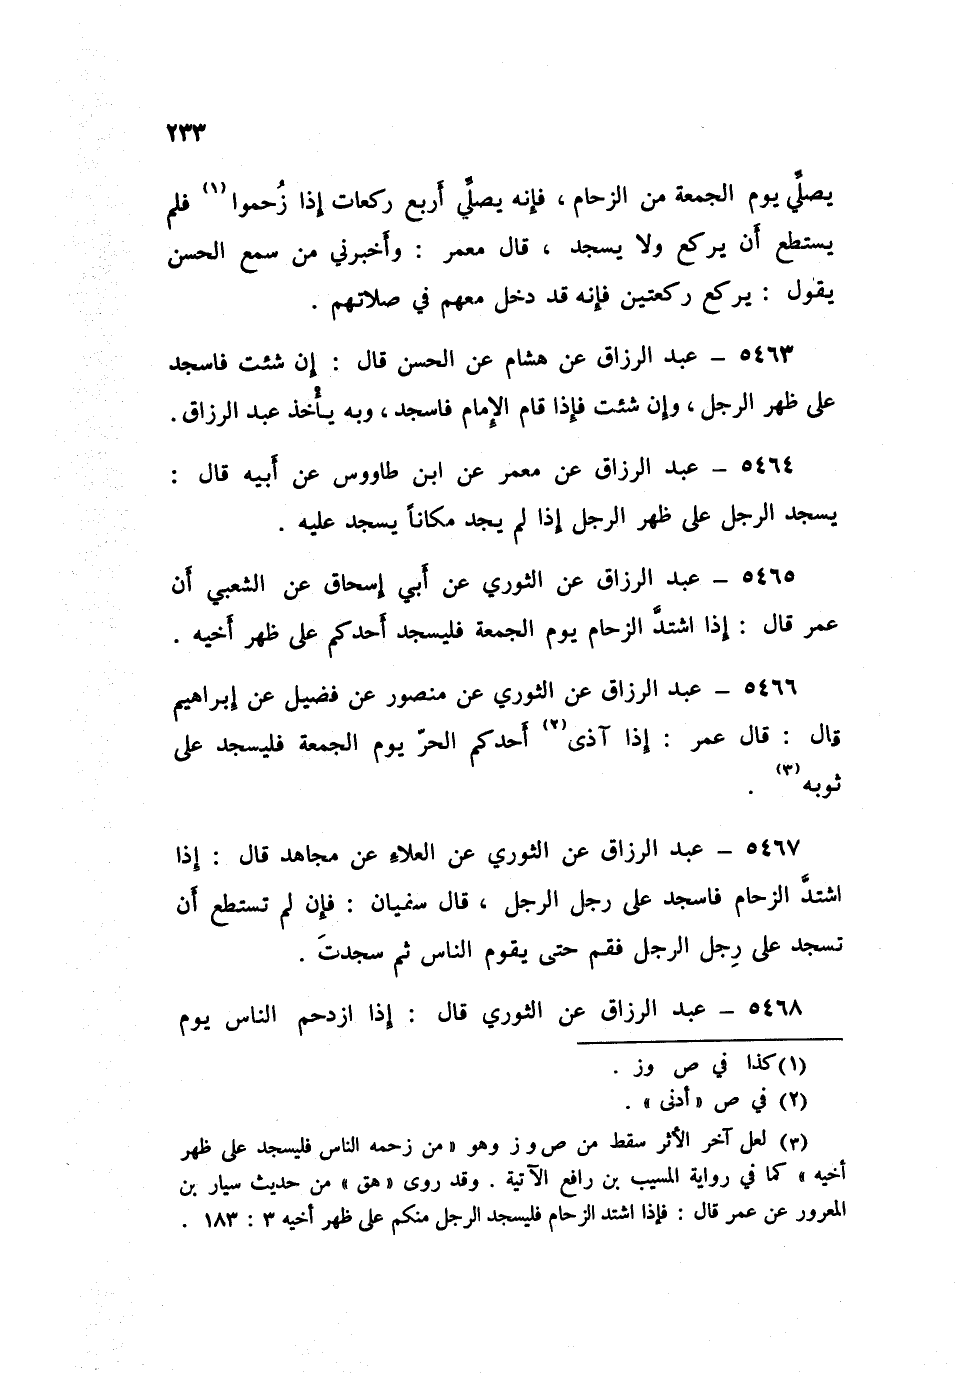 ٢٣٣
يصلَّي يوم الجمعة من الزحام ، فإنه يصلَّي أَربع ركعات إذا زُحموا(١) فلم
يستطع أَن يركع ولا يسجد ، قال معمر : وأَخبرني من سمع الحسن
يقول : يركع ركعتين فإنه قد دخل معهم في صلاتهم .
٥٤٦٣ – عبد الرزاق عن هشام عن الحسن قال : إن شئت فاسجد
على ظهر الرجل ، وإن شئت فإذا قام الإمام فاسجد ، وبه يأْخذ عبد الرزاق .
٥٤٦٤ – عبد الرزاق عن معمر عن ابن طاووس عن أَبيه قال :
يسجد الرجل على ظهر الرجل إذا لم يجد مكاناً يسجد عليه .
٥٤٦٥ – عبد الرزاق عن الثوري عن أَبي إسحاق عن الشعبي أَن
عمر قال : إذا اشتدَّ الزحام يوم الجمعة فليسجد أَحدكم على ظهر أَخيه .
٥٤٦٦ – عبد الرزاق عن الثوري عن منصور عن فضيل عن إبراهيم
قال : قال عمر : إذا آذى(٢) أَحدكم الحرّ يوم الجمعة فليسجد على
ثوبه(٣) .
٥٤٦٧ – عبد الرزاق عن الثوري عن العلاءِ عن مجاهد قال : إذا
اشتدَّ الزحام فاسجد على رجل الرجل ، قال سفيان : فإن لم تستطع أَن
تسجد على رِجل الرجل فقم حتى يقوم الناس ثم سجدتَ .
٥٤٦٨ – عبد الرزاق عن الثوري قال : إذا ازدحم الناس يوم
(١) كذا في ص وز .
(٢) في ص « أدنى » .
(٣) لعل آخر الأثر سقط من ص و ز وهو « من زحمه الناس فليسجد على ظهر
أخيه » كما في رواية المسيب بن رافع الآتية . وقد روى « هق » من حديث سيار بن
المعرور عن عمر قال : فإذا اشتد الزحام فليسجد الرجل منكم على ظهر أخيه ٣ : ١٨٣ .